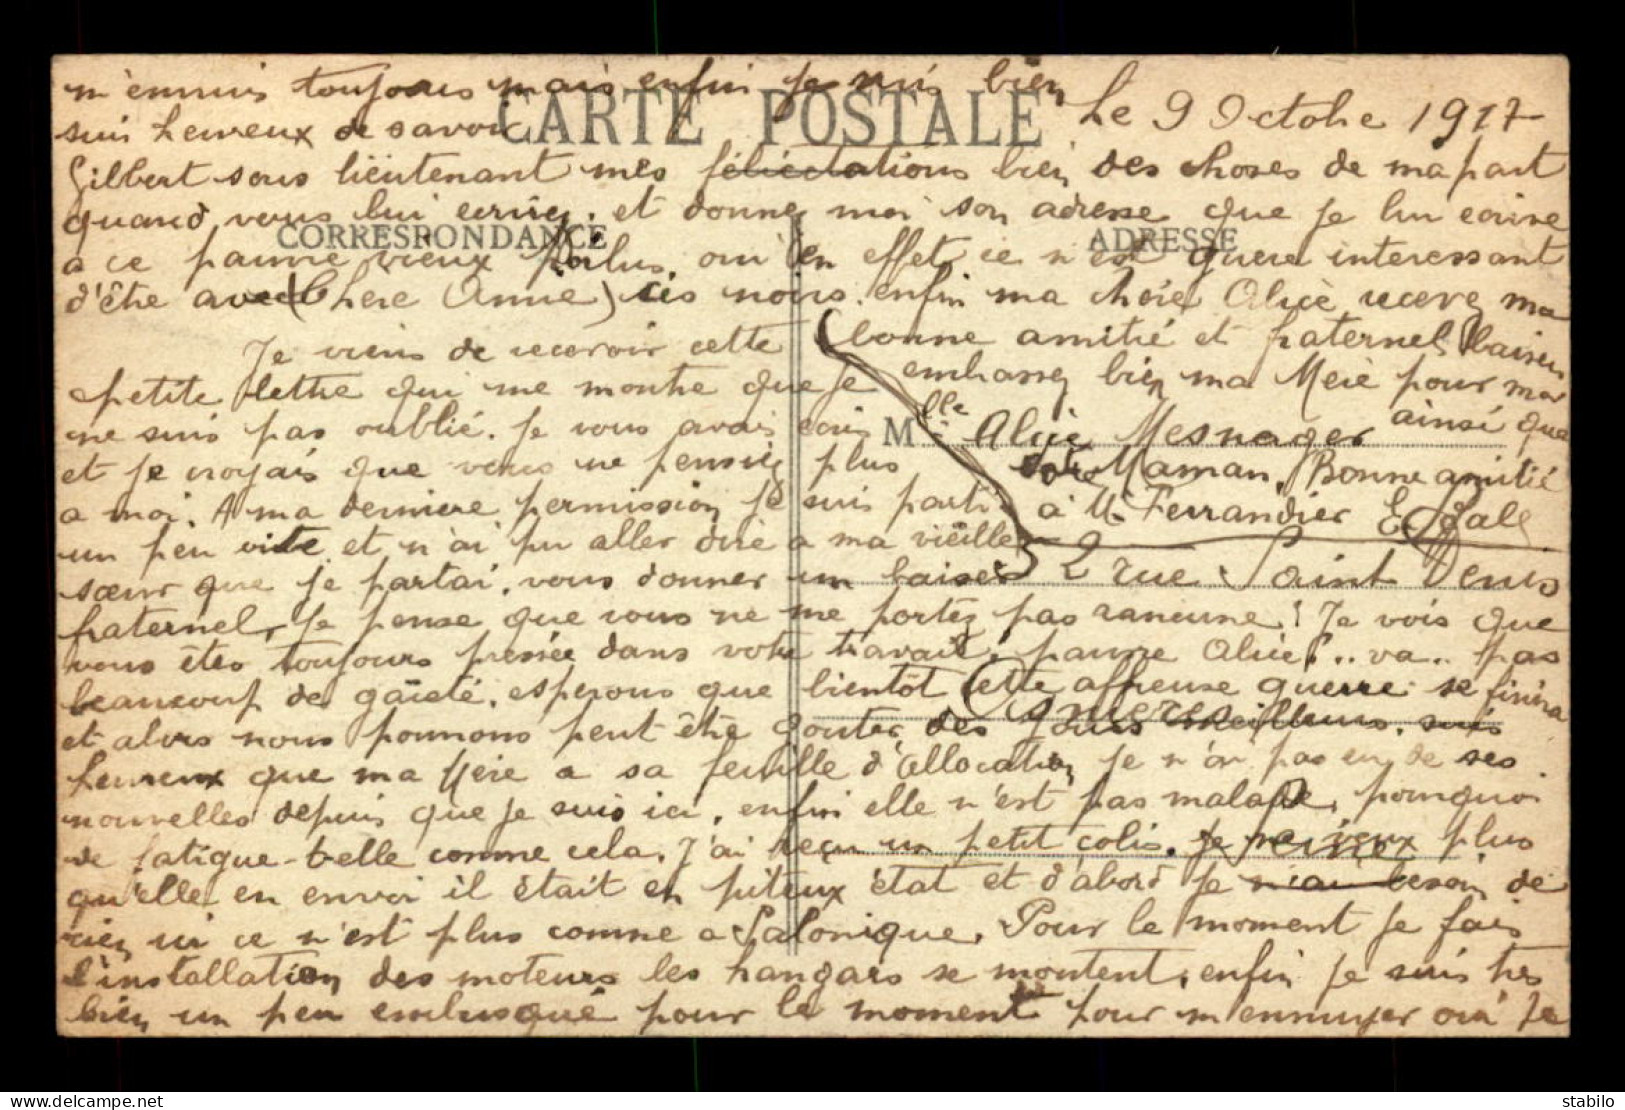 m'ennuis toujours mais enfin je suis bien
CARTE POSTALE
Le 9 Octobre 1917
suis heureux de savoir
Gilbert sous lieutenant mes félicitations bien des choses de ma part
quand vous lui ecrirez. et donnez moi son adresse que je lui ecrive
CORRESPONDANCE
ADRESSE
a ce pauvre vieux Poilus. oui en effet ce n'est guere interessant
d'être avec (Chere Amie) ces noirs. enfin ma chère Alice recevez ma
bonne amitié et fraternel baiser
embrassez bien ma Mère pour moi
ainsi que
votre Maman. Bonne amitié
à M. Ferrandier E. Gall
Je viens de recevoir cette
petite lettre qui me montre que je
ne suis pas oublié. Je vous avais écris
et je croyais que vous ne pensiez plus
a moi. A ma derniere permission je suis parti
un peu vite et n'ai pu aller dire a ma vieille
sœur que je partai. vous donner un baiser
fraternel. Je pense que vous ne me portez pas rancune! Je vois que
vous êtes toujours pressée dans votre travail, pauvre Alice!.. va.. pas
beaucoup de gaïeté. esperons que bientôt cette affreuse guerre se finira
et alors nous pourrons peut être gouter des jours meilleurs. suis
heureux que ma Mère a sa feuille d'allocation je n'ai pas eu de ses
nouvelles depuis que je suis ici. enfin elle n'est pas malade, pourquoi
se fatigue-telle comme cela. J'ai reçu un petit colis. je ne veux plus
qu'elle en envoi il était en piteux état et d'abord je n'ai besoin de
rien ici ce n'est plus comme a Salonique. Pour le moment je fais
l'installation des moteurs les hangars se montent, enfin je suis tres
bien un peu embusqué pour le moment pour m'ennuyer oui je
Mlle Alice Mesnager
2 rue Saint Denis
Asnieres
Seine
stabilo